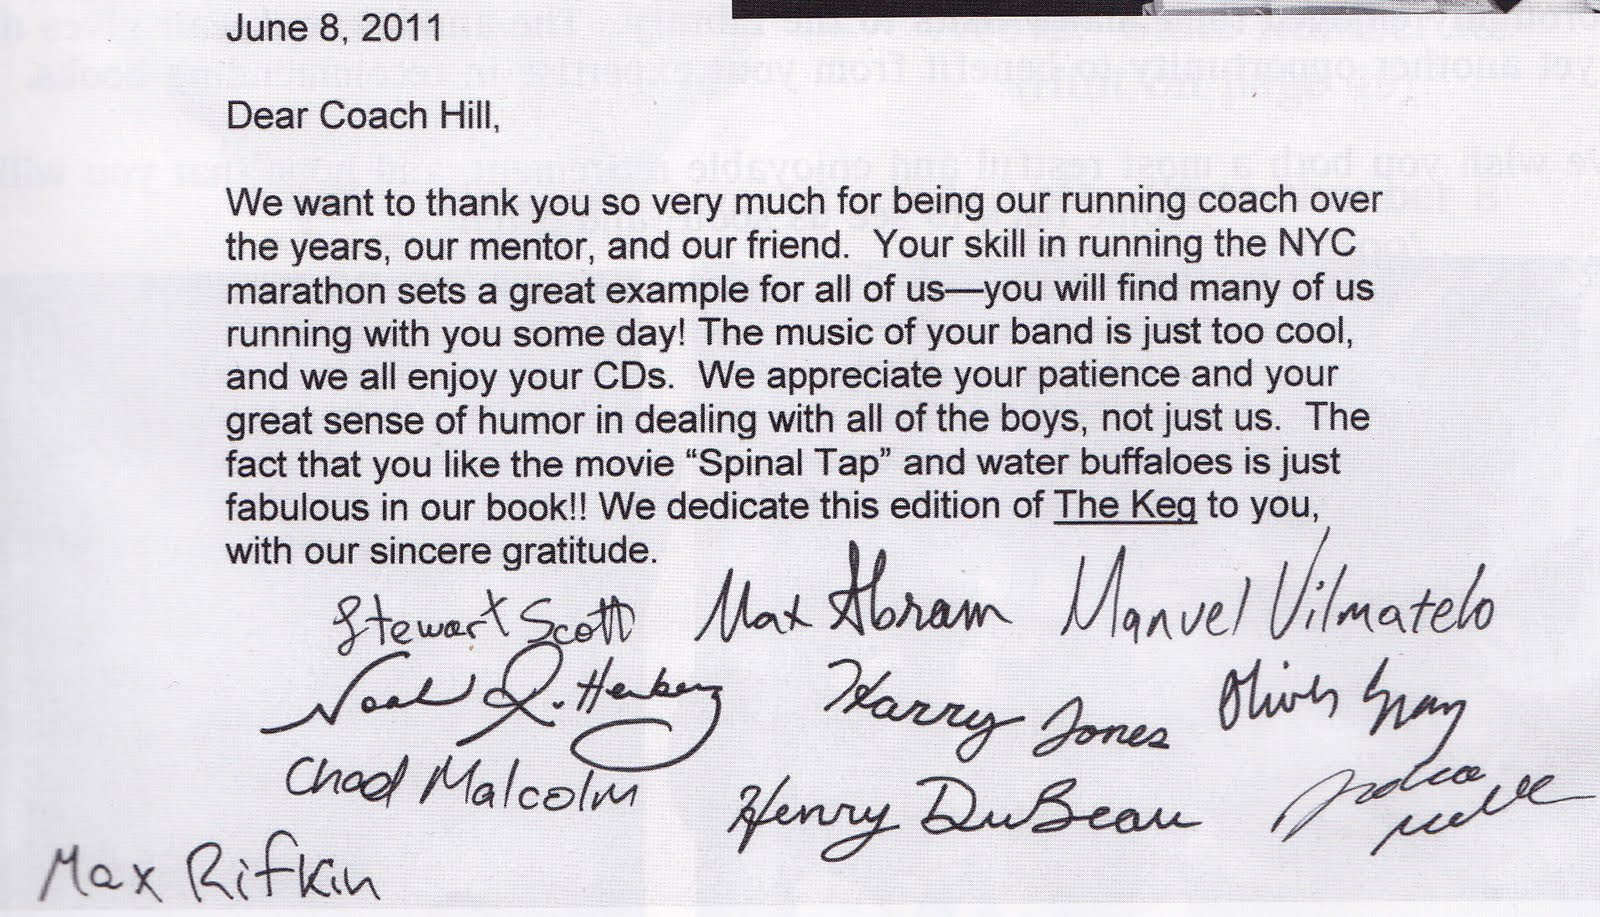 June 8, 2011
Dear Coach Hill,
We want to thank you so very much for being our running coach over
the years, our mentor, and our friend.  Your skill in running the NYC
marathon sets a great example for all of us—you will find many of us
running with you some day! The music of your band is just too cool,
and we all enjoy your CDs.  We appreciate your patience and your
great sense of humor in dealing with all of the boys, not just us.  The
fact that you like the movie “Spinal Tap” and water buffaloes is just
fabulous in our book!! We dedicate this edition of The Keg to you,
with our sincere gratitude.
Stewart Scott Max Abram Manuel Vilmatelo
Noah Q. Harry Jones Oliver
Chad Malcolm Henry DuBeau
Max Rifkin